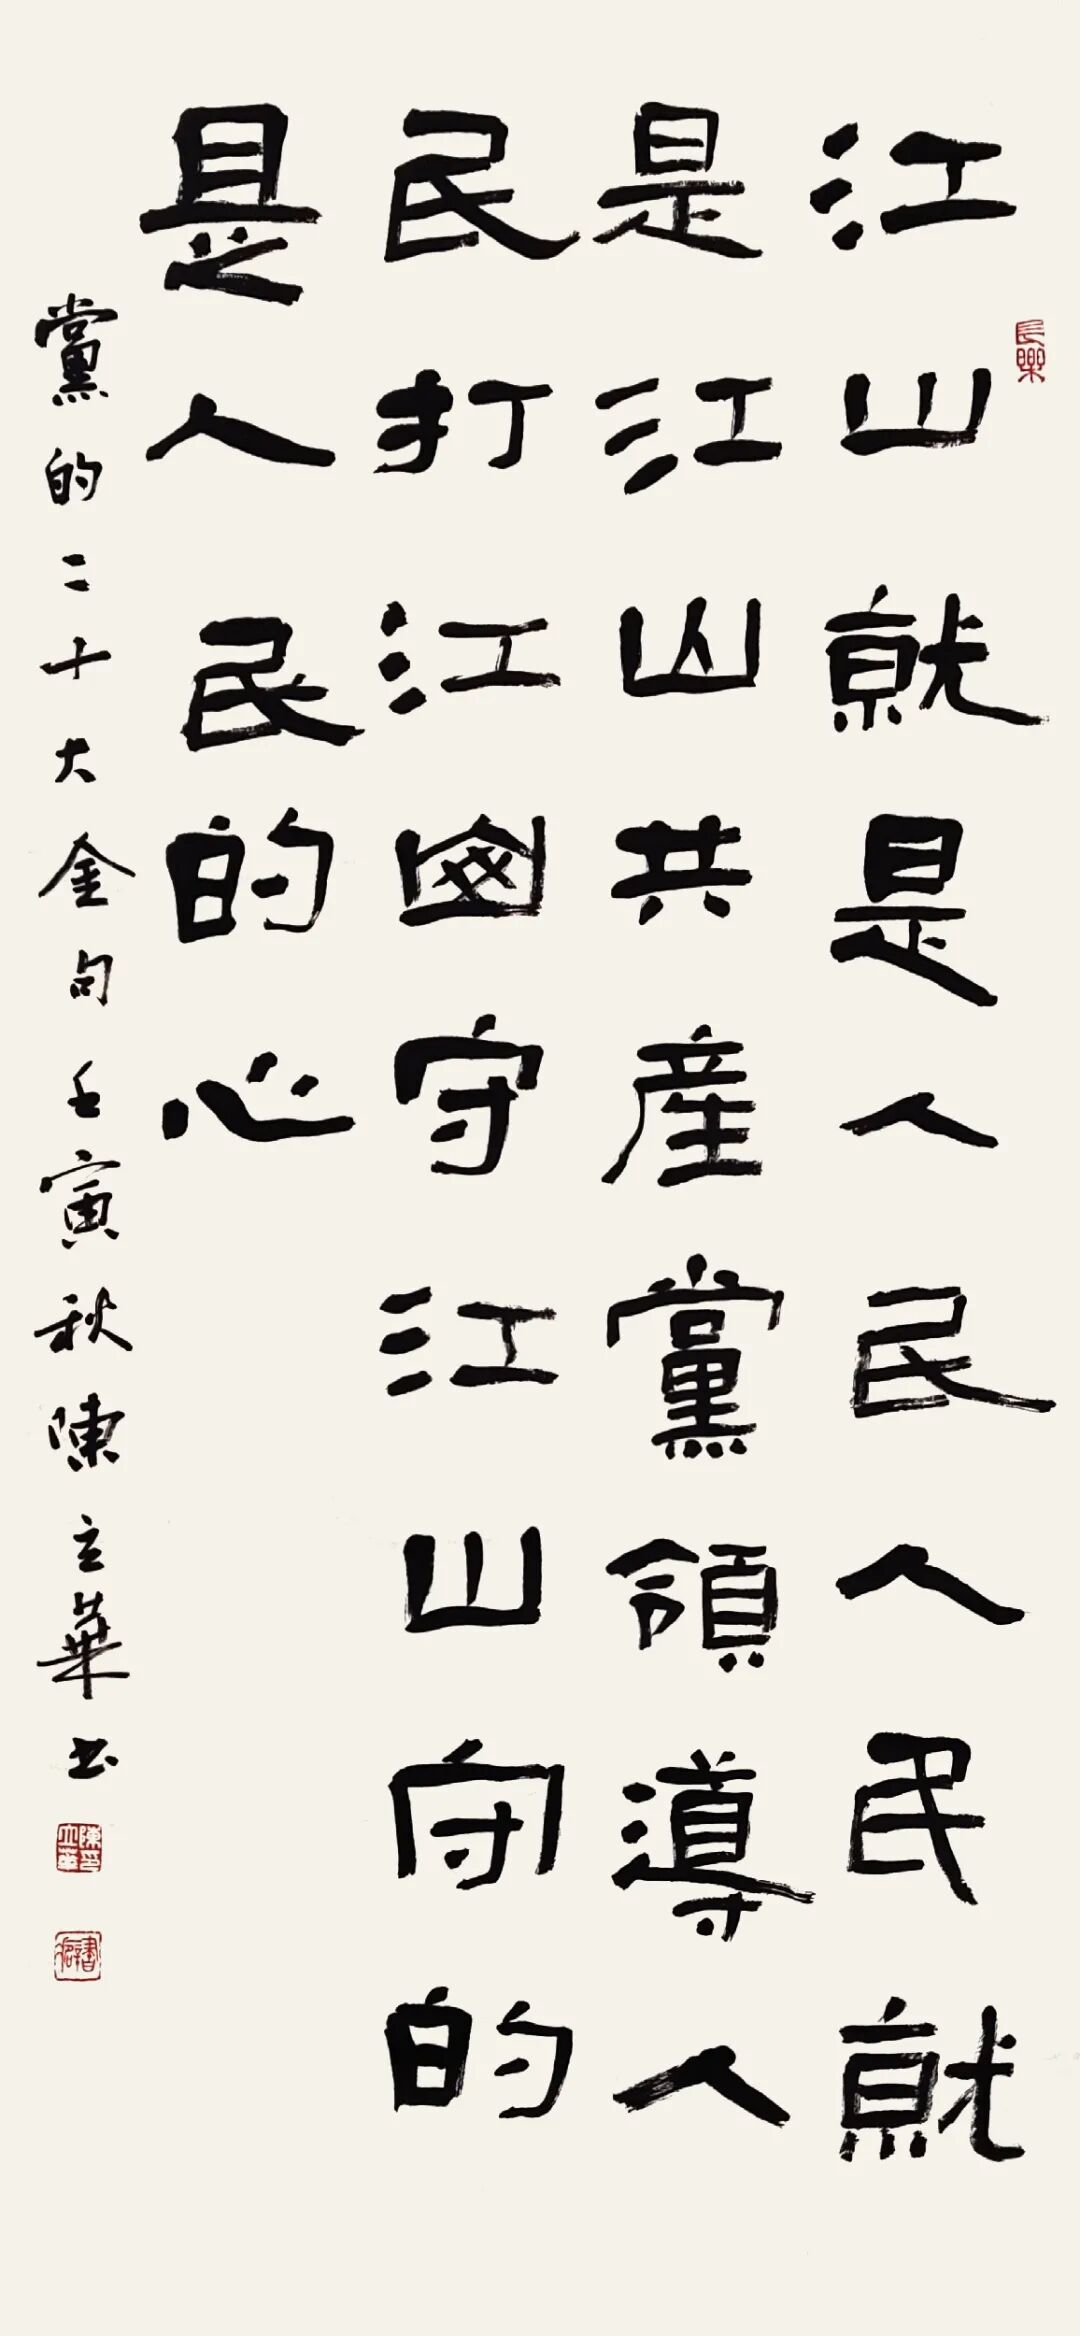 長樂
江山就是人民人民就
是江山共産黨領導人
民打江山守江山守的
是人民的心
黨的二十大金句壬寅秋陳立華书
陳印立華